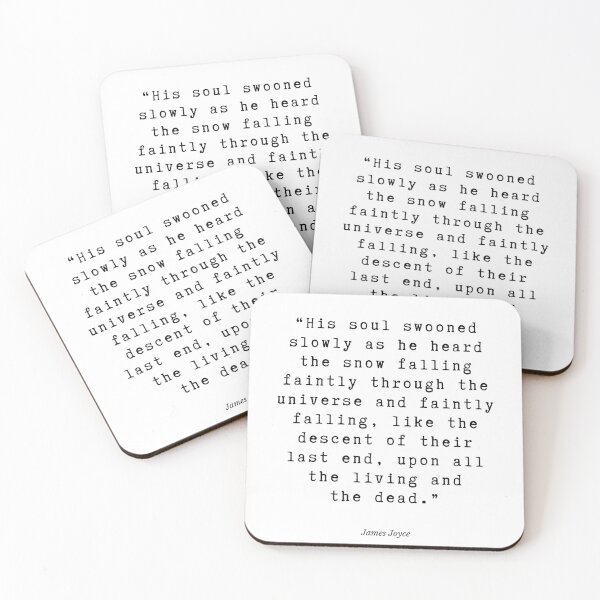 “His soul swooned
slowly as he heard
the snow falling
faintly through the
universe and
the
their
“His soul swooned
slowly as he heard
the snow falling
faintly through the
universe and faintly
falling, like the
descent of their
last end, upon all
“His soul swooned
slowly as he heard
the snow falling
faintly through the
universe and faintly
falling, like the
descent of their
last end,
the living
the
James
“His soul swooned
slowly as he heard
the snow falling
faintly through the
universe and faintly
falling, like the
descent of their
last end, upon all
the living and
the dead.”
James Joyce